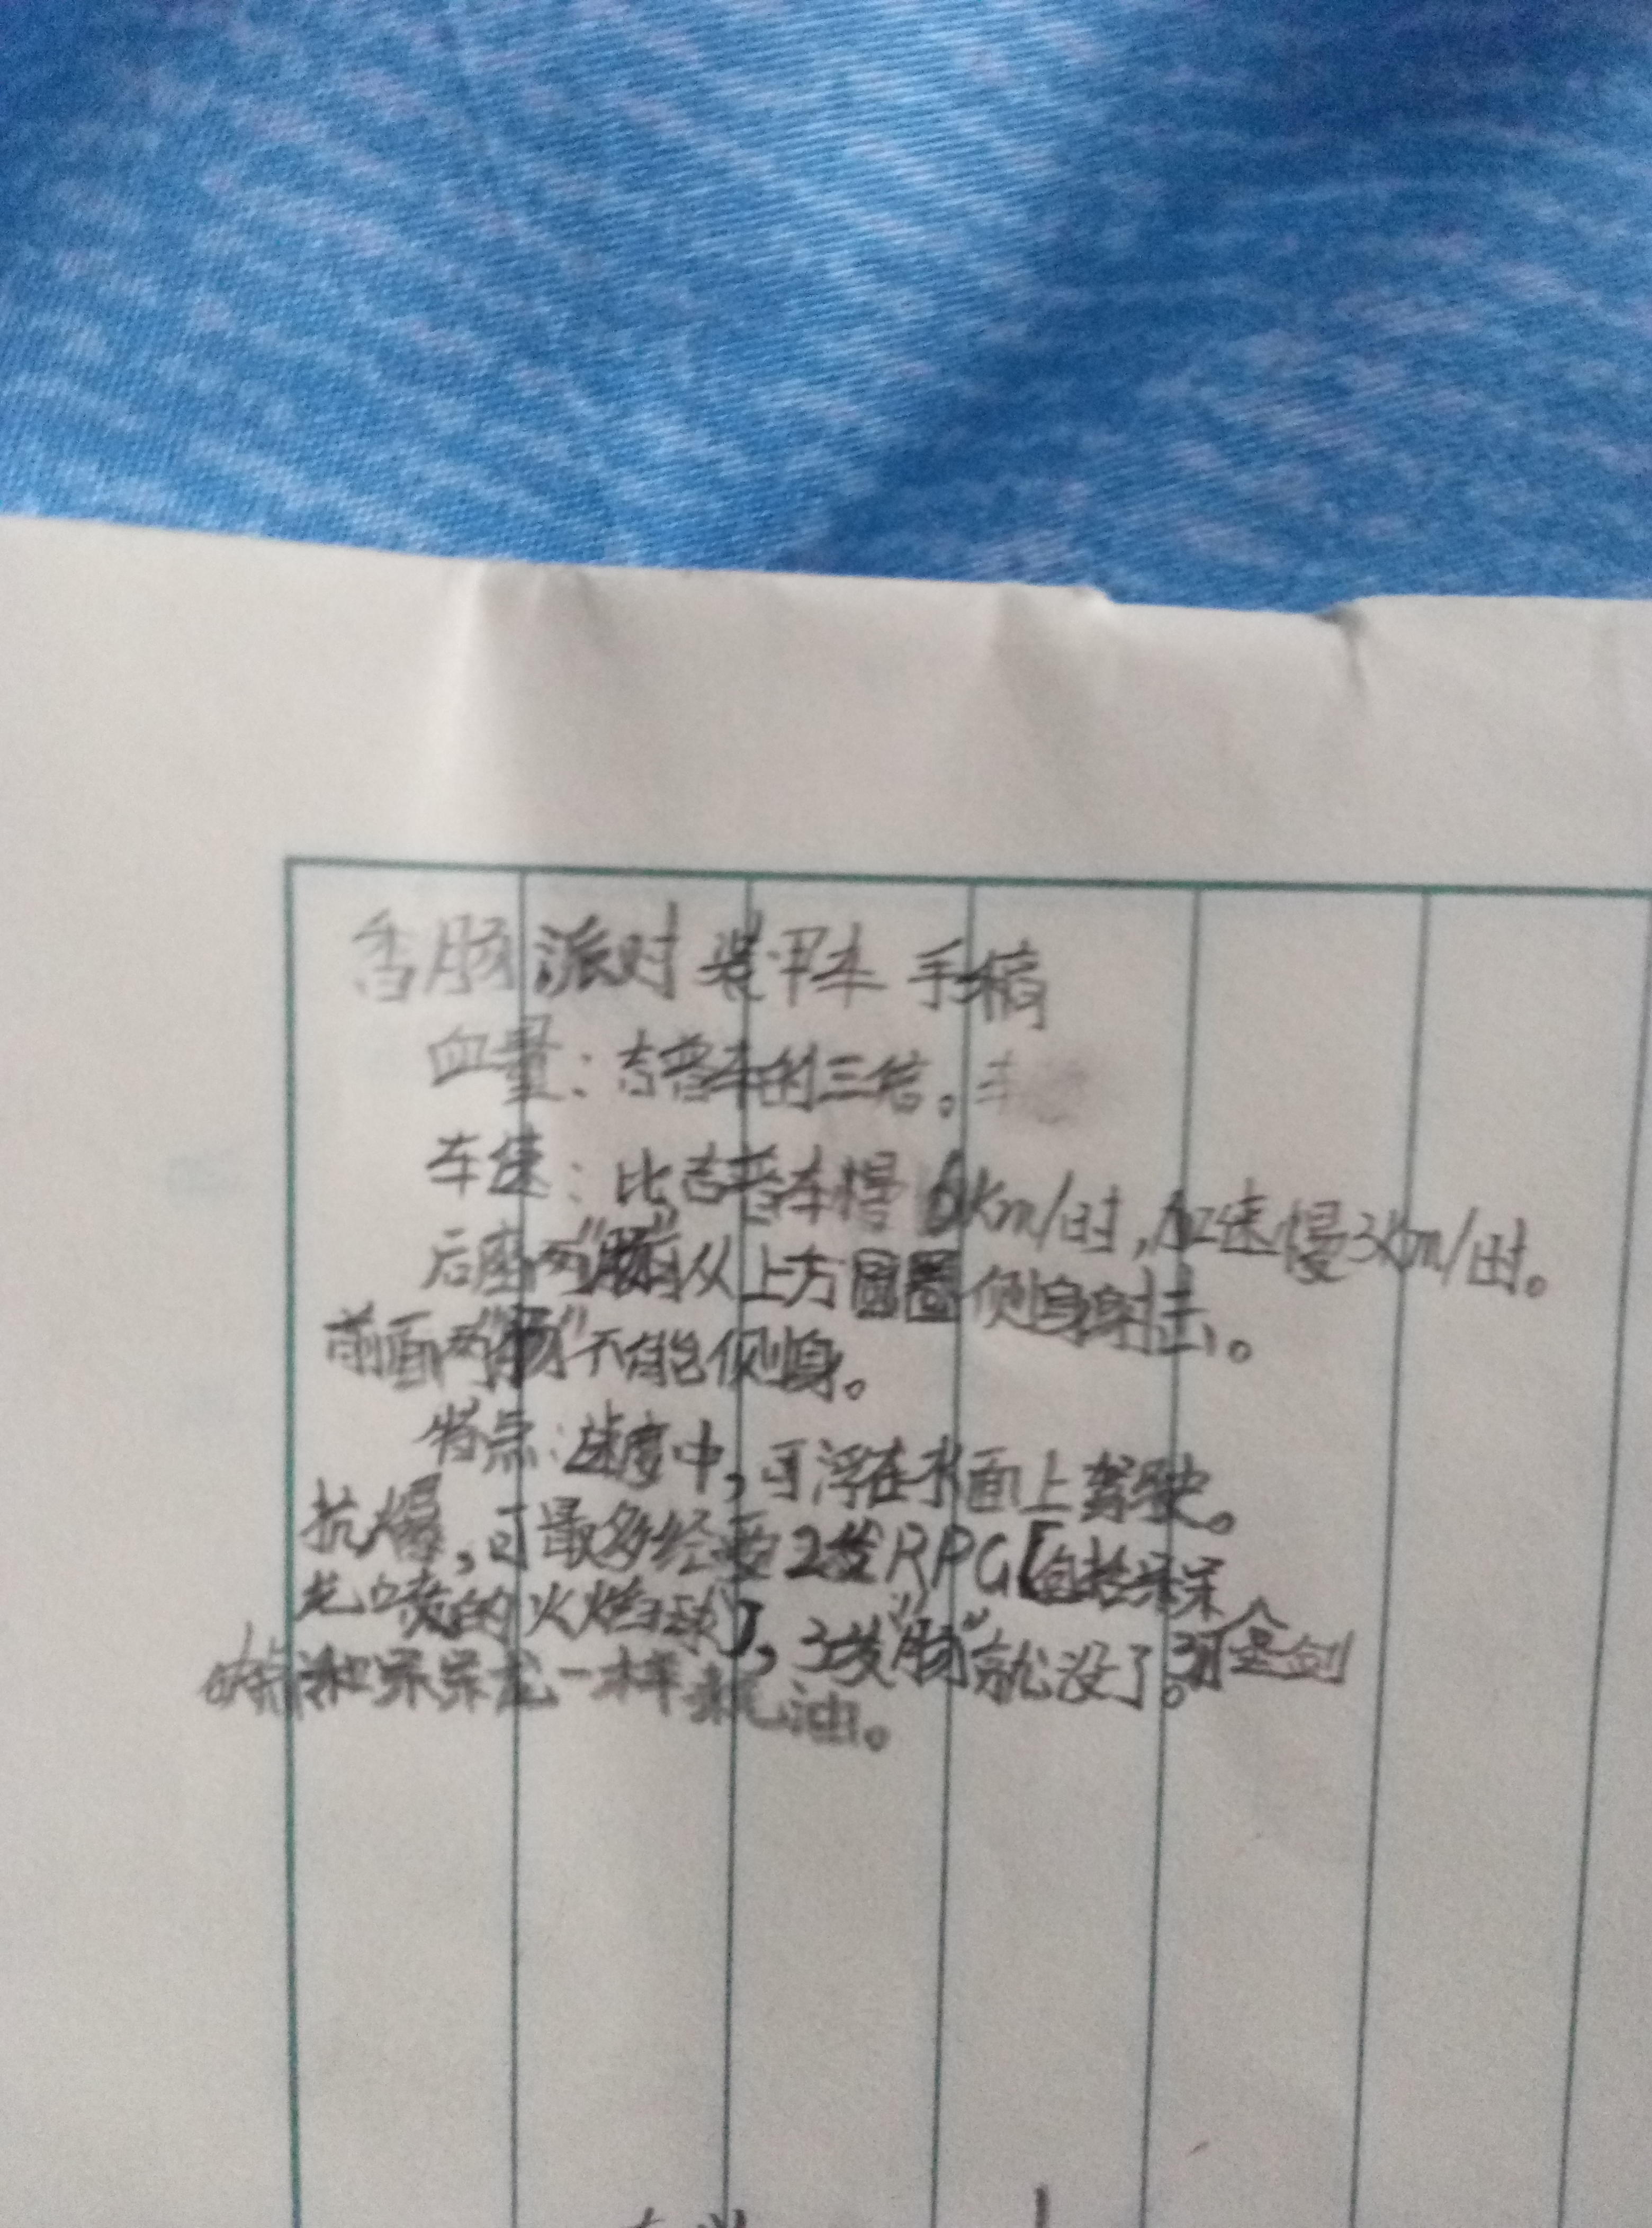 香肠派对 装甲车 手稿
血量：吉普车的三倍。车
车速：比吉普车慢6km/时，加速慢3km/时。
后座两“肠”从上方圆圈侧身射击。
前面两“肠”不能侧身。
特点：速度中，可浮在水面上驾驶。
抗爆，可最多经受2发RPG【包括呆呆
龙喷的火焰球】，3发“肠”就没了。
啥和呆呆龙一样耗油。